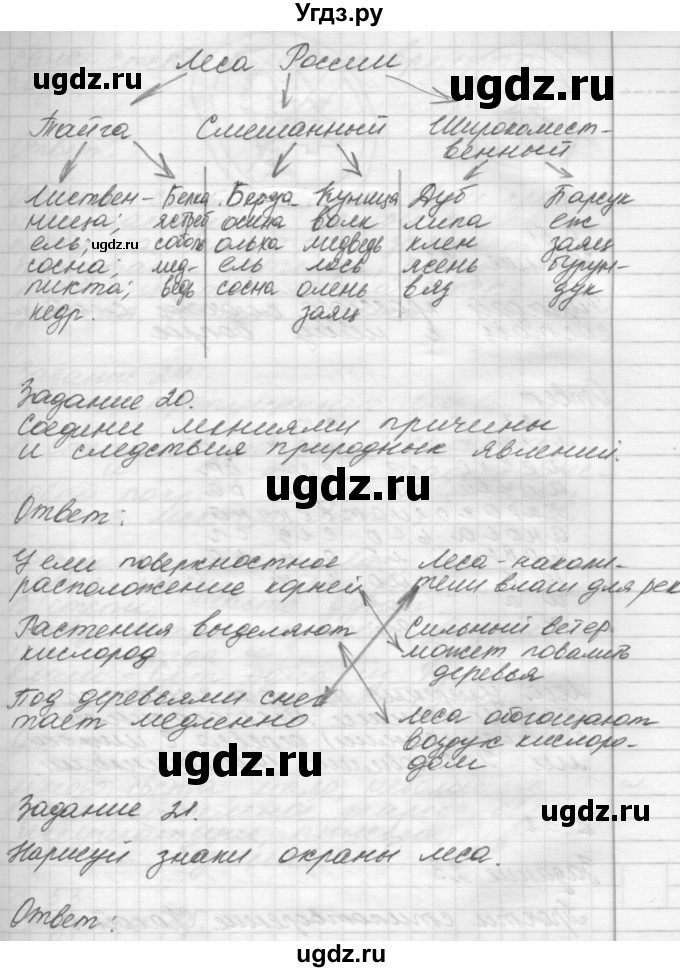 Угдз.ру
Леса России
ugdz.ru ugdz.ru
Тайга Смешанный Широколист-
венный
Листвен- Белка Береза Куница Дуб Барсук
ница; ястреб осина волк липа еж
ель; ugdz.ru соболь ольха медведь клен заяц
сосна; мед- ель лось ясень бурун-
пихта; ведь сосна олень вяз дук
кедр. заяц
Задание 20.
Соедини линиями причины
и следствия природных явлений.
ugdz.ru
Ответ:
У ели поверхностное Леса-накопи-
расположение корней тели влаги для рек
Растения выделяют Сильный ветер
кислород может повалить
деревья
Под деревьями снег
тает медленно Леса обогощают
воздух кислоро-
ugdz.ru дом
Задание 21. ugdz.ru
Нарисуй знаки охраны леса.
Ответ:
ugdz.ru